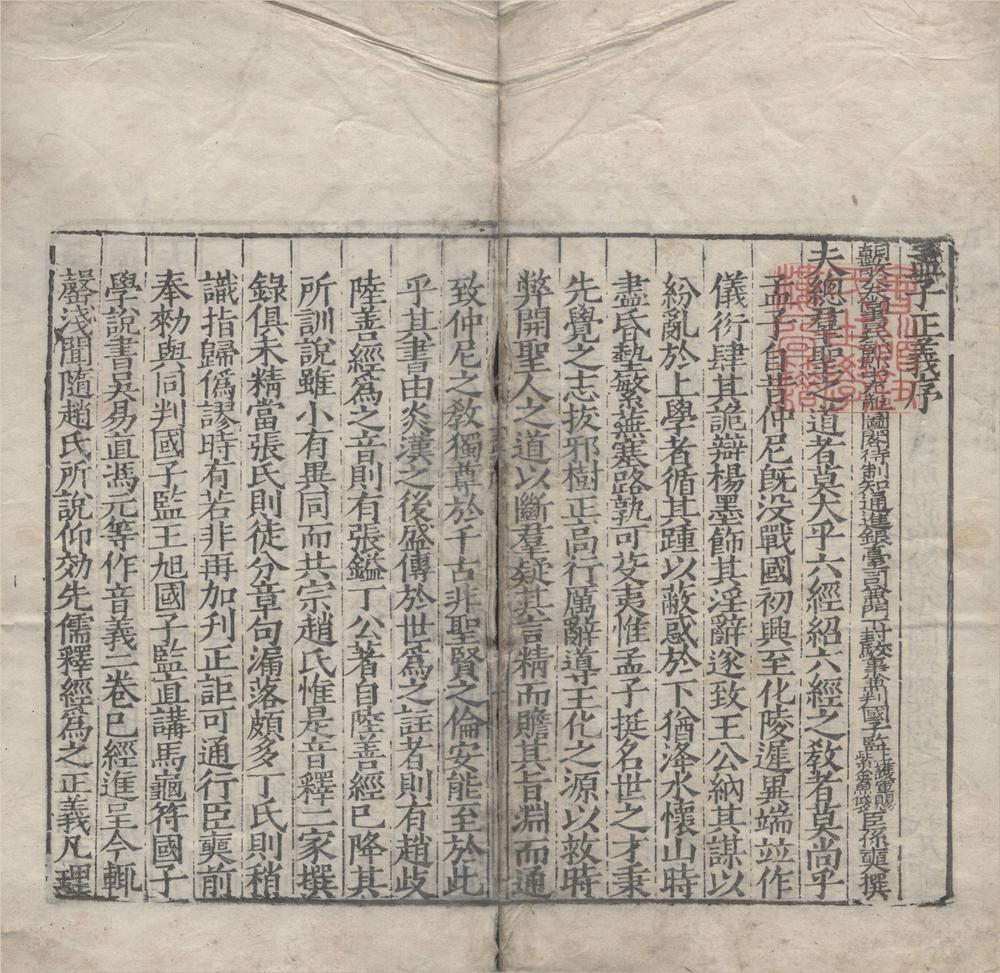 孟子正義序
朝散大夫尚書兵部郎中充龍圖閣待制知通進銀臺司兼門下封駮事兼判國子監上護軍賜紫金魚袋臣孫奭撰
夫總羣聖之道者莫大乎六經紹六經之敎者莫尚乎
孟子自昔仲尼旣没戰國初興至化陵遲異端竝作
儀衍肆其詭辯楊墨飾其淫辭遂致王公納其謀以
紛亂於上學者循其踵以蔽惑於下猶洚水懷山時
盡昏墊繁蕪塞路孰可芟夷惟孟子挺名世之才秉
先覺之志拔邪樹正高行厲辭導王化之源以救時
弊開聖人之道以斷羣疑其言精而贍其旨淵而通
致仲尼之敎獨尊於千古非聖賢之倫安能至於此
乎其書由炎漢之後盛傳於世爲之註者則有趙歧
陸善經爲之音則有張鎰丁公著自陸善經已降其
所訓說雖小有異同而共宗趙氏惟是音釋二家撰
錄俱未精當張氏則徒分章句漏落頗多丁氏則稍
識指歸僞謬時有若非再加刋正詎可通行臣奭前
奉勑與同判國子監王旭國子監直講馬龜符國子
學說書吳易直馮元等作音義二卷已經進呈今輒
罄淺聞隨趙氏所說仰効先儒釋經爲之正義凡理